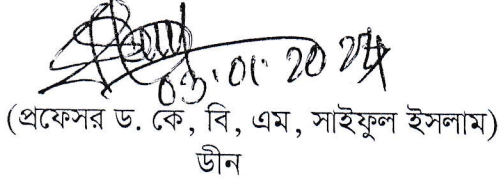 03.01.2024
(প্রফেসর ড. কে, বি, এম, সাইফুল ইসলাম)
ডীন